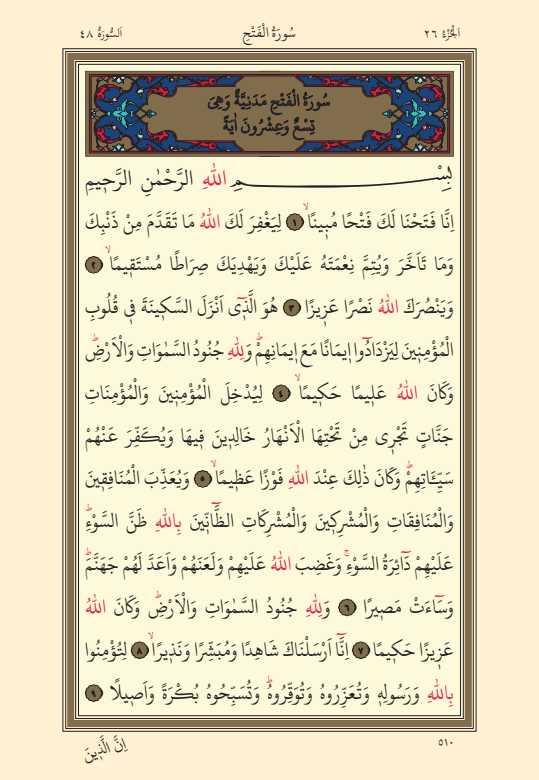 اَلْجُزْءُ ٢٦ سُورَةُ الْفَتْحِ اَلسُّورَةُ ٤٨
سُورَةُ الْفَتْحِ مَدَنِيَّةٌ وَهِىَ
تِسْعٌ وَعِشْرُونَ اٰيَةً
بِسْمِ اللهِ الرَّحْمٰنِ الرَّحٖيمِ
اِنَّا فَتَحْنَا لَكَ فَتْحًا مُبٖينًاۙ ١ لِيَغْفِرَ لَكَ اللهُ مَا تَقَدَّمَ مِنْ ذَنْبِكَ
وَمَا تَاَخَّرَ وَيُتِمَّ نِعْمَتَهُ عَلَيْكَ وَيَهْدِيَكَ صِرَاطًا مُسْتَقٖيمًاۙ ٢
وَيَنْصُرَكَ اللهُ نَصْرًا عَزٖيزًا ٣ هُوَ الَّذٖٓى اَنْزَلَ السَّكٖينَةَ فٖى قُلُوبِ
الْمُؤْمِنٖينَ لِيَزْدَادُٓوا اٖيمَانًا مَعَ اٖيمَانِهِمْؕ وَلِلّٰهِ جُنُودُ السَّمٰوَاتِ وَالْاَرْضِؕ
وَكَانَ اللهُ عَلٖيمًا حَكٖيمًاۙ ٤ لِيُدْخِلَ الْمُؤْمِنٖينَ وَالْمُؤْمِنَاتِ
جَنَّاتٍ تَجْرٖى مِنْ تَحْتِهَا الْاَنْهَارُ خَالِدٖينَ فٖيهَا وَيُكَفِّرَ عَنْهُمْ
سَيِّپَاتِهِمْؕ وَكَانَ ذٰلِكَ عِنْدَ اللهِ فَوْزًا عَظٖيمًاۙ ٥ وَيُعَذِّبَ الْمُنَافِقٖينَ
وَالْمُنَافِقَاتِ وَالْمُشْرِكٖينَ وَالْمُشْرِكَاتِ الظَّٓانّٖينَ بِاللهِ ظَنَّ السَّوْءِؕ
عَلَيْهِمْ دَٓائِرَةُ السَّوْءِۚ وَغَضِبَ اللهُ عَلَيْهِمْ وَلَعَنَهُمْ وَاَعَدَّ لَهُمْ جَهَنَّمَؕ
وَسَٓاءَتْ مَصٖيرًا ٦ وَلِلّٰهِ جُنُودُ السَّمٰوَاتِ وَالْاَرْضِؕ وَكَانَ اللهُ
عَزٖيزًا حَكٖيمًا ٧ اِنَّٓا اَرْسَلْنَاكَ شَاهِدًا وَمُبَشِّرًا وَنَذٖيرًاۙ ٨ لِتُؤْمِنُوا
بِاللهِ وَرَسُولِهٖ وَتُعَزِّرُوهُ وَتُوَقِّرُوهُؕ وَتُسَبِّحُوهُ بُكْرَةً وَاَصٖيلًا ٩
٥١٠ اِنَّ الَّذٖينَ